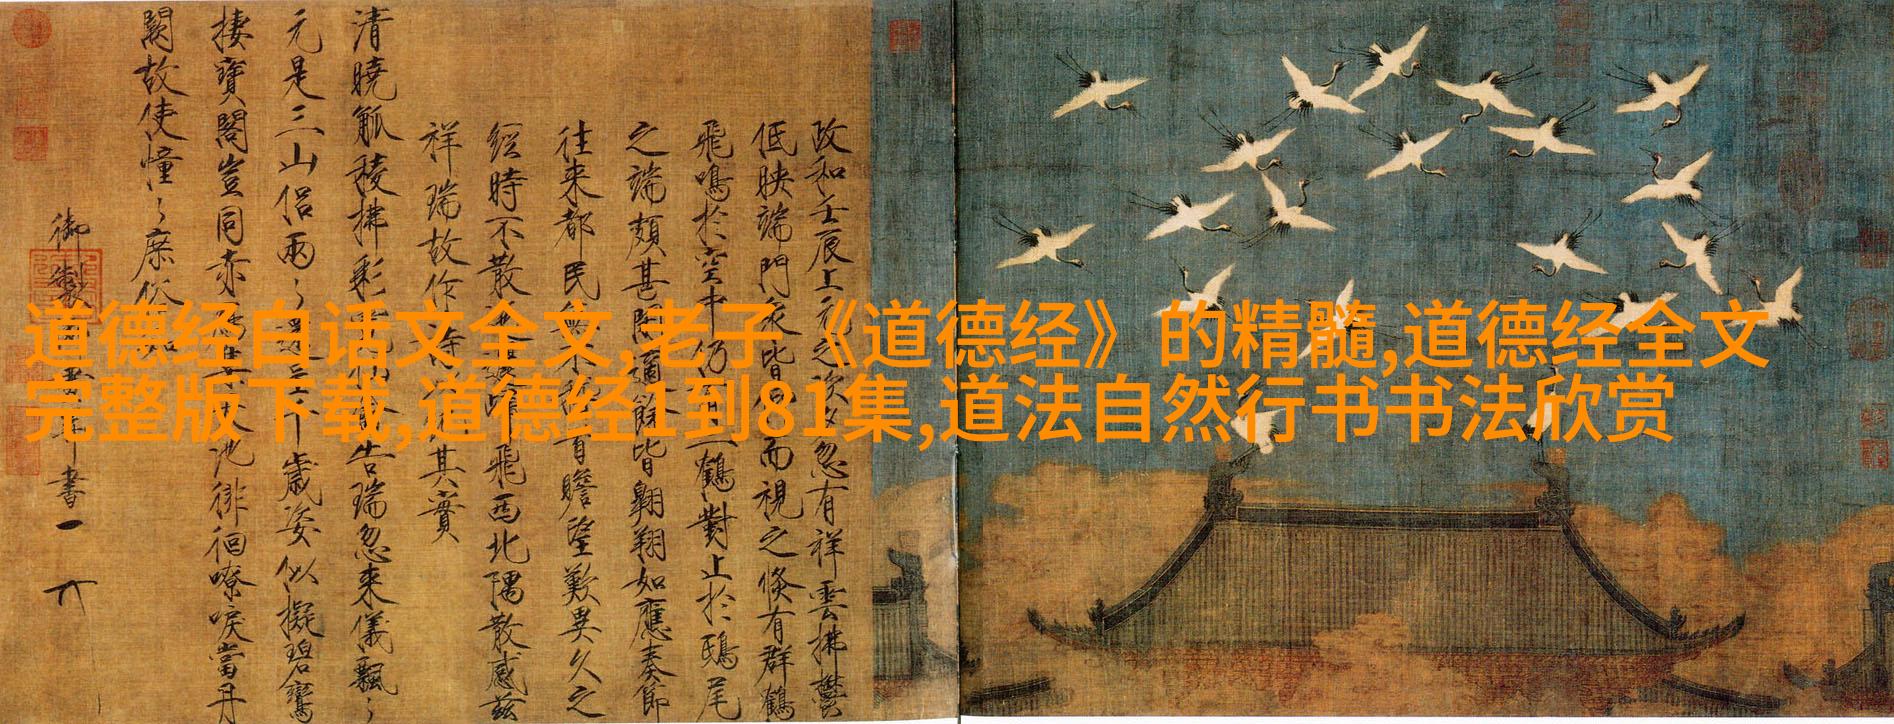 道德经白话文全文,老子《道德经》的精髓,道德经全文
完整版下载,道德经1到81集,道法自然行书书法欣赏
政和壬辰上元之次夕忽有祥雲拂鬱
低映端門衆皆仰而視之倐有群鶴
飛鳴於空中仍有二鶴對止於鴟尾
之端頗甚閒適餘皆翱翔如應奏節
往來都民無不稽首瞻望歎異久之
經時不散迤邐歸飛西北隅散感茲
祥瑞故作詩以紀其實
清曉觚稜拂彩霓仙禽告瑞忽來儀飄〻
元是三山侶兩〻還呈千歲姿似擬碧鸞
棲寶閣豈同赤鴈集天池徘徊嘹唳當丹
闕故使憧〻庶俗知
御製御畫并書